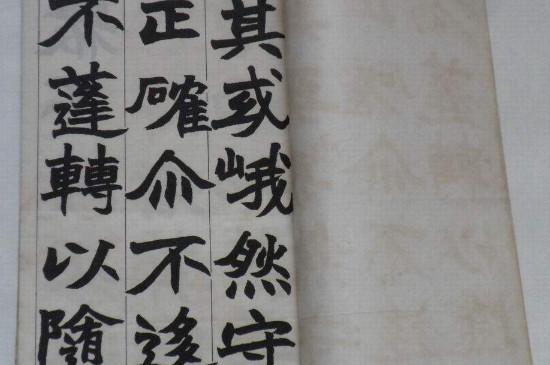 其或峨然守
正確介不迻
不蓬轉以隨